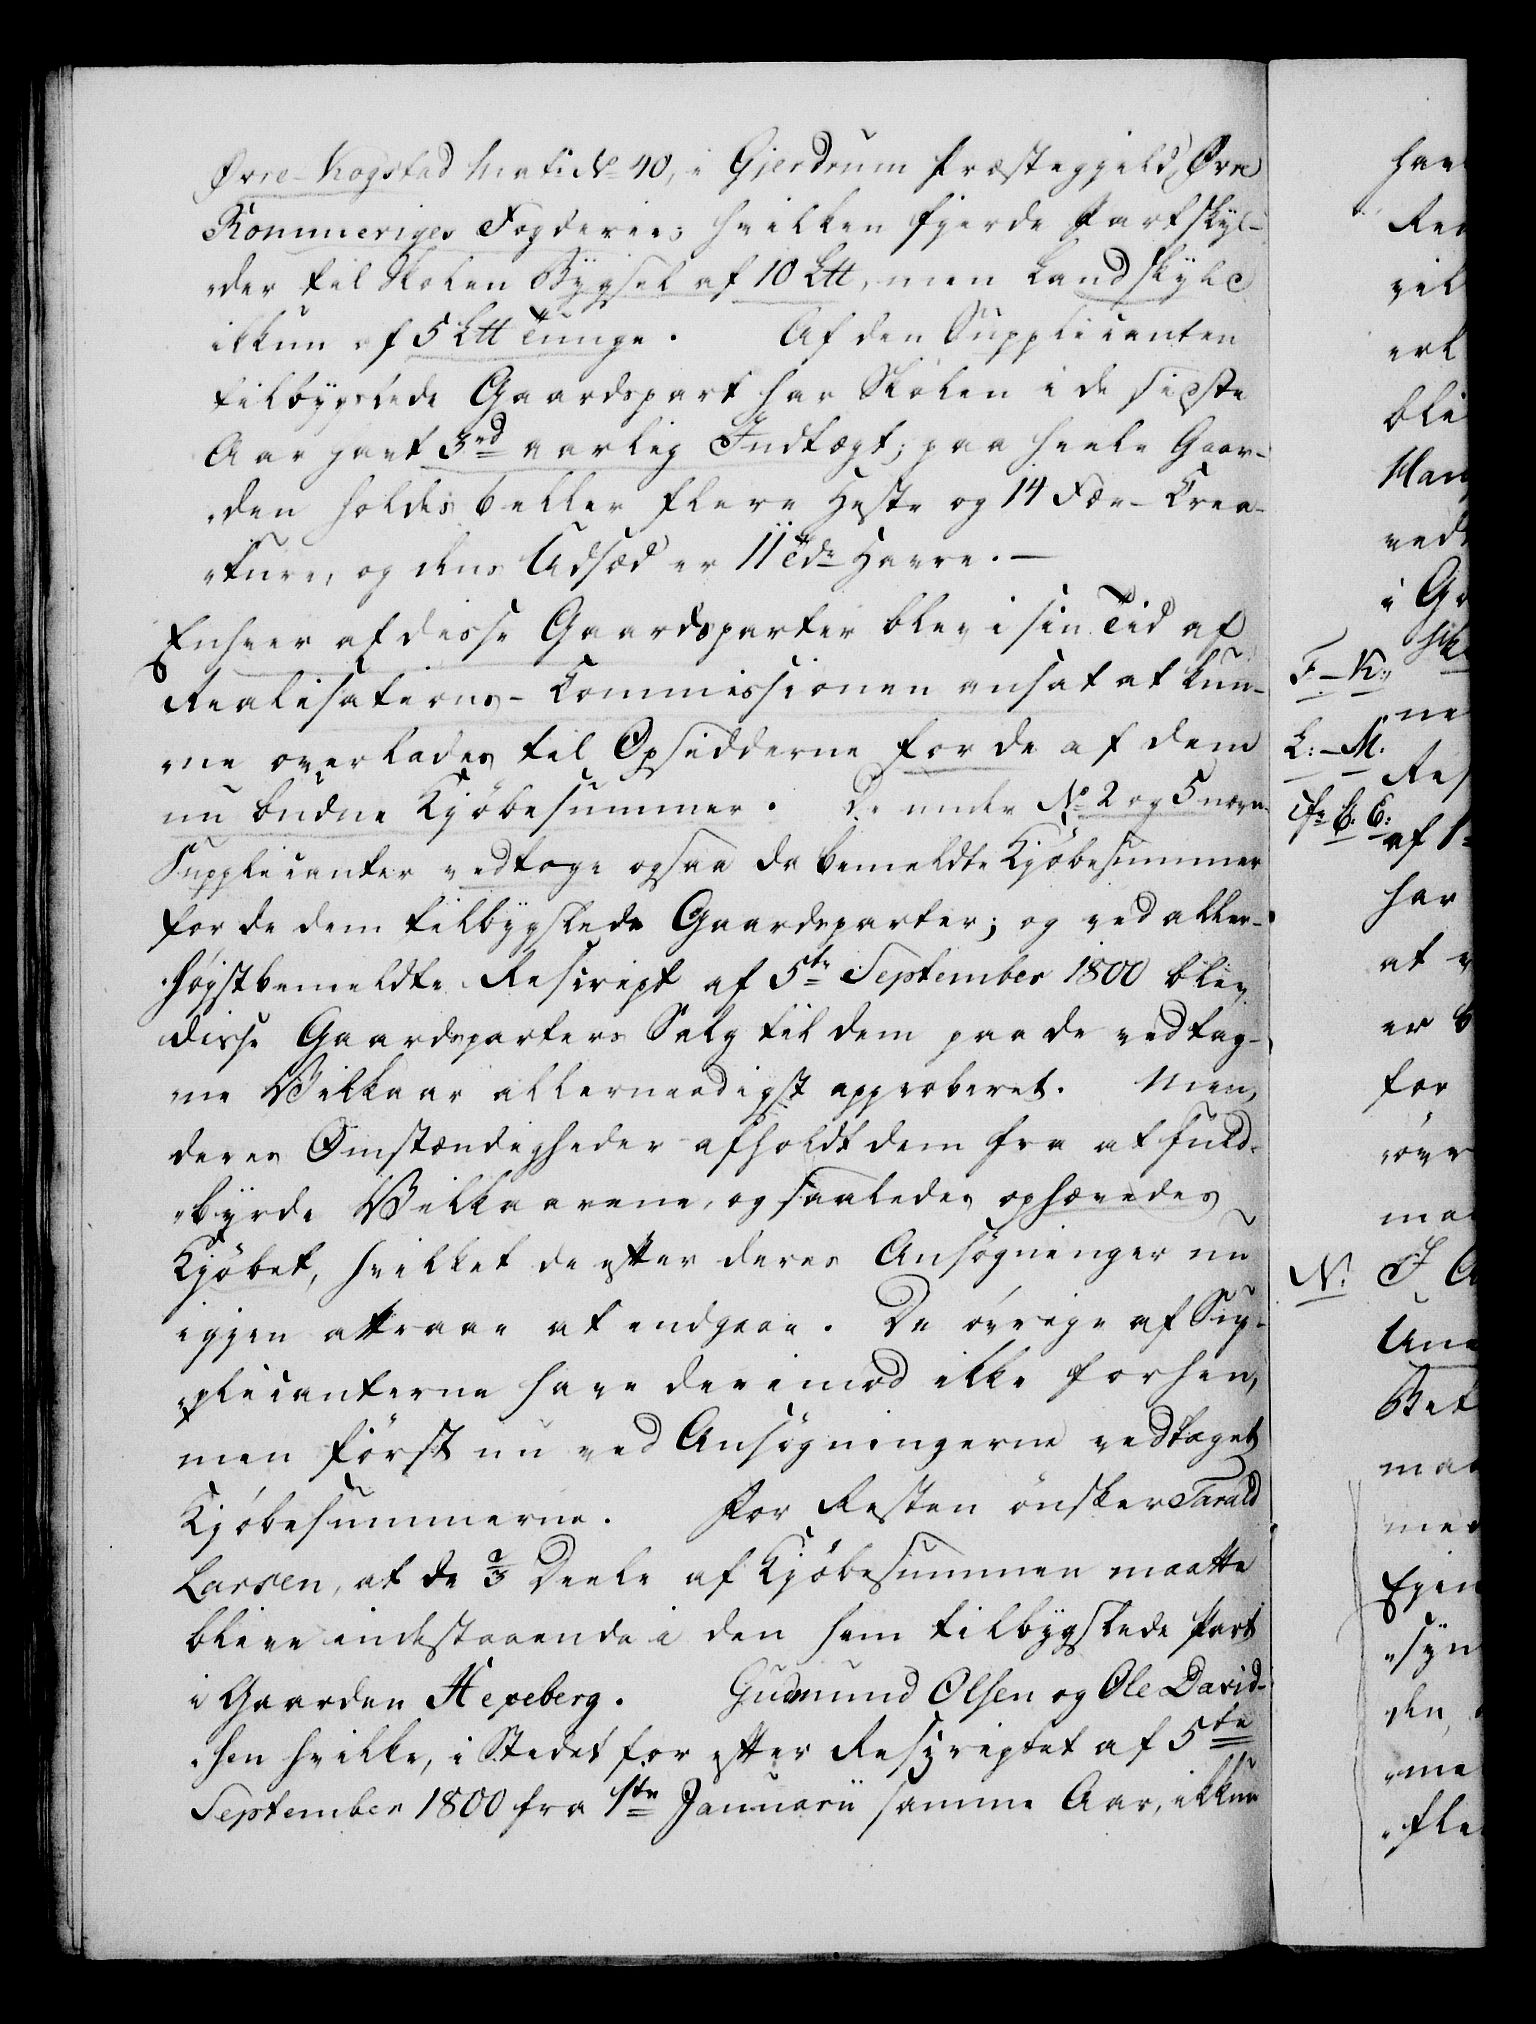 Øvre-Kogstad Mat: No 40, i Gjerdrum Præstegjeld, Øvre
Rommeriges Fogderie; hvilken fjerde Part skyl-
„der til Skolen Bygsel af 10 Ltt, men Landskyld
ikkun af 5 Ltt Tunge. Af den Supplicanten
tilbygslede Gaardspart har Skolen i de sidste
Aar havt 3rd aarlig Indtægt; paa heele Gaar-
„den holdes 6 eller flere Heste og 14 Fæe-Crea-
„turer, og dens Udsæd er 11 Tdr Havre. —
Enhver af disse Gaardsparter blev i sin Tid af
Realisations-Commissionen ansat at kun-
„ne overlades til Opsidderne for de af dem
nu budne Kjöbesummer. De under No 2 og 5 nævn-
Supplicanter vedtoge ogsaa da bemeldte Kjöbesummer
for de dem tilbygslede Gaardsparter; og ved aller-
„höystbemeldte Rescript af 5te September 1800 blev
disse Gaardsparters Salg til dem paa de vedtag-
„ne Vilkaar allernaadigst approberet. Men,
deres Omstændigheder afholdt dem fra at fuld-
„byrde Vilkaarene, og saaledes ophævedes
Kjöbet, hvilket de efter deres Ansögninger nu
igjen attraae at indgaae. De övrige af Sup-
„plicanterne have derimod ikke forhen,
men först nu ved Ansögningerne vedtaget
Kjöbesummerne. For Resten önsker Tarald
Larsen, at de 2/3 Deele af Kjöbesummen maatte
blive indestaaende i den ham tilbygslede Part
i Gaarden Hexeberg. Gudmund Olsen og Ole David-
„sen hvilke, i Stedet for efter Rescriptet af 5te
September 1800 fra 1ste Januarii samme Aar, ikkun
F-K:
L:-M.
N.